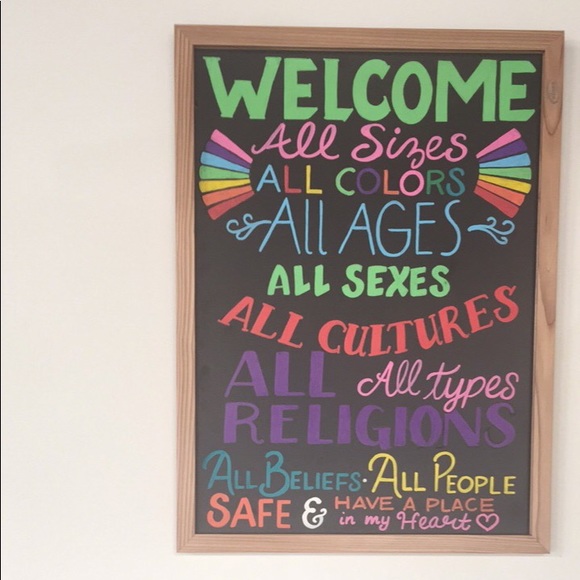 WELCOME
All Sizes
ALL COLORS
All AGES
ALL SEXES
ALL CULTURES
ALL All types
RELIGIONS
ALL BELIEFS · ALL PEOPLE
SAFE & HAVE A PLACE
in my Heart ♡